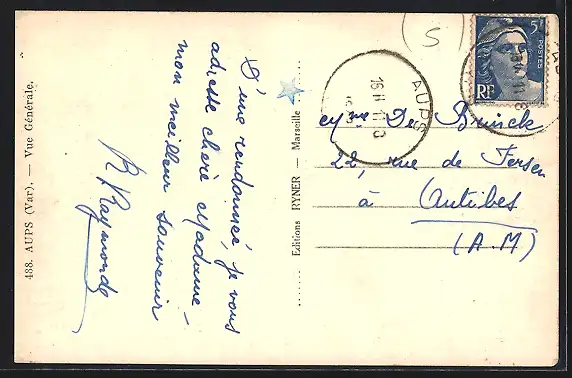 488. AUPS (Var). — Vue Générale.
D'une randonnée, je vous
adresse chère Madame –
mon meilleur souvenir
R Raymonde
Editions RYNER — Marseille
(S)
5F
POSTES
RF
AUPS
16 H 11
Mme De Brinck
22, rue de Fersen
à Antibes
(A.M)